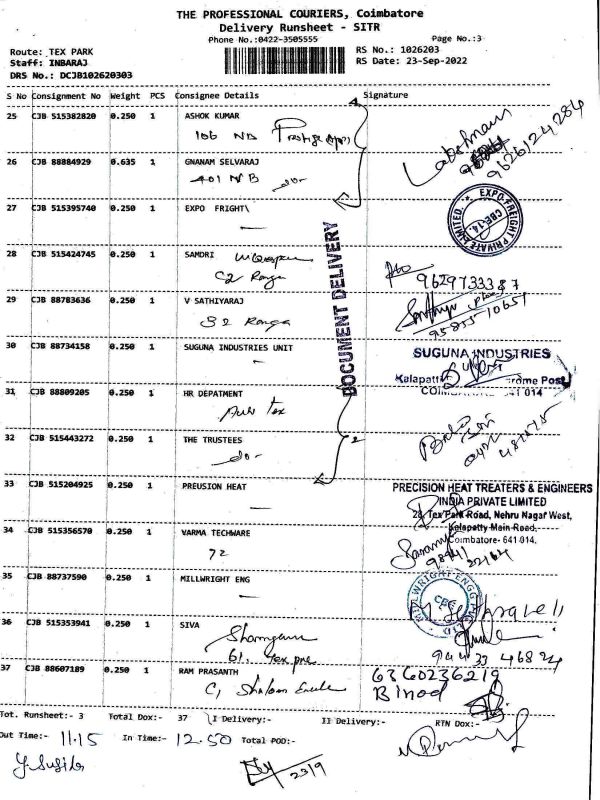 THE PROFESSIONAL COURIERS, Coimbatore
Delivery Runsheet - SITR
Phone No.:0422-3505555
Page No.:3
Route: TEX PARK
RS No.: 1026203
Staff: INBARAJ
RS Date: 23-Sep-2022
DRS No.: DCJB102620303
S No Consignment No Weight PCS Consignee Details Signature
25 CJB 515382820 0.250 1 ASHOK KUMAR
106 NB Prestige
9626124284
26 CJB 88884929 0.635 1 GNANAM SELVARAJ
401 NB -do-
27 CJB 515395740 0.250 1 EXPO FRIGHT\
EXPO-FREIGHT PRIVATE LIMITED
CBE-14.
DOCUMENT DELIVERY
28 CJB 515424745 0.250 1 SAMDRI
C2 Ranga
9629733387
29 CJB 88783636 0.250 1 V SATHIYARAJ
S2 Ranga
95855 10651
30 CJB 88734158 0.250 1 SUGUNA INDUSTRIES UNIT
SUGUNA INDUSTRIES
Kalapatti
rome Post
641 014
31 CJB 88809205 0.250 1 HR DEPATMENT
Tex
32 CJB 515443272 0.250 1 THE TRUSTEES
-do-
33 CJB 515204925 0.250 1 PREUSION HEAT
PRECISION HEAT TREATERS & ENGINEERS
INDIA PRIVATE LIMITED
28, Tex Park Road, Nehru Nagar West,
Kalapatty Main Road,
Coimbatore- 641 014.
34 CJB 515356570 0.250 1 VARMA TECHWARE
72
98941 22164
35 CJB 88737590 0.250 1 MILLWRIGHT ENG
MILLWRIGHT ENGG
36 CJB 515353941 0.250 1 SIVA
61, Tex
94433 46824
37 CJB 88607189 0.250 1 RAM PRASANTH
C, Shalom
6360236219
Binod
Tot. Runsheet:- 3 Total Dox:- 37 I Delivery:- II Delivery:- RTN Dox:-
Out Time:- 11.15 In Time:- 12.50 Total POD:-
23/9